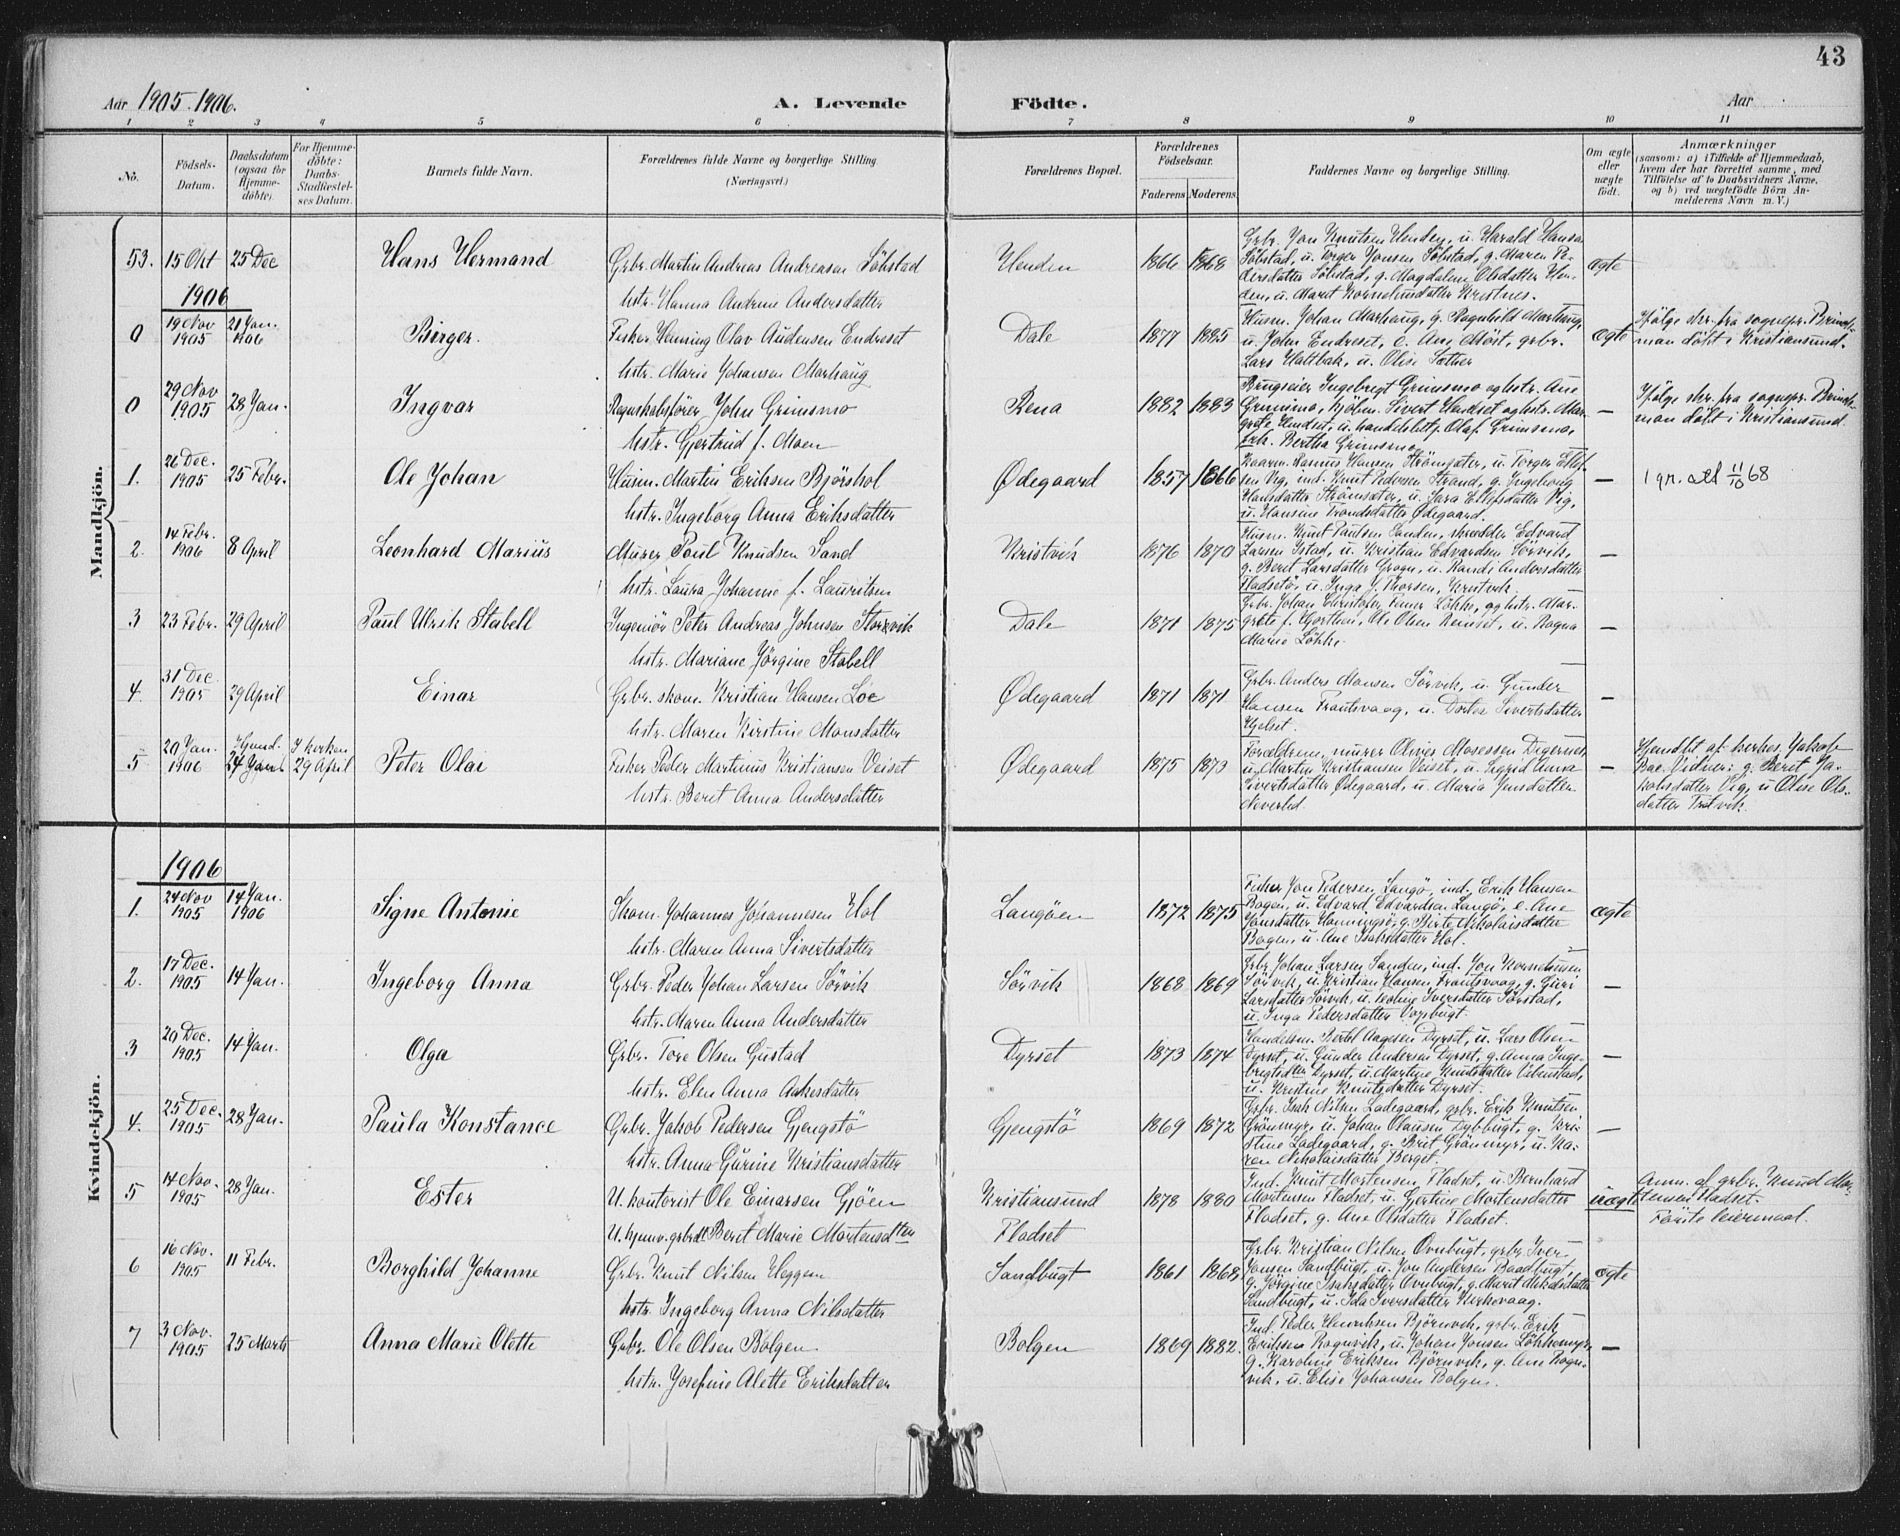 43
Aar 1905-1906.
A. Levende Födte.
Aar
1 2 3 4 5 6 7 8 9 10 11
No.
Födsels-Datum.
Daabsdatum (ogsaa for Hjemme-döbte).
For Hjemme-döbte: Daabs-Stadfæstel-ses Datum.
Barnets fulde Navn.
Forældrenes fulde Navne og borgerlige Stilling (Næringsvei.)
Forældrenes Bopæl.
Forældrenes Födselsaar.
Faderens Moderens
Faddernes Navne og borgerlige Stilling.
Om ægte eller uægte födt.
Anmærkninger
(saasom: a) i Tilfælde af Hjemmedaab, hvem der har forrettet samme, med Tilföielse af to Daabsvidners Navne, og b) ved uægtefödte Börn An-melderens Navn m. V.)
Mandkjön.
53. 15 Okt 25 Dec Hans Hermand
Grbr. Martin Andreas Andreasen Söbstad
hstr. Hanna Andrine Andersdatter
Henden 1866 1868
Grbr. Jon Knutsen Henden, u. Harald Hansen
Söbstad, u. Torger Jonsen Söbstad, g. Maren Pe-
dersdatter Söbstad, g. Magdalene Olsdatter Hen-
den, u. Marit Korneliusdatter Kristnes.
ægte
1906
0 19 Nov 1905 21 Jan. 1906 Birger.
Fisker Henning Olav Audensen Endreset
hstr. Marie Johansen Marhaug
Dale 1877 1885
Husm. Johan Marhaug, g. Ragnhild Marhaug,
u. John Endreset, e. Ane Möst, grbr.
Lars Hattbak, u. Olise Sæther
ægte
Ifölge skr. fra sognepr. Brinch-
man döbt i Kristiansund.
0 29 Nov 1905 28 Jan. Ingvar
Regnskabsförer John Grimsmo
hstr. Gertrud f. Moen
Rena 1882 1883
Brugseier Ingebrigt Grimsmo og hstr. Ane
Grimsmo, kjöbm. Sivert Hendset og hstr. Mar-
grete Hendset, u. handelsbetj. Olaf Grimsmo,
frk. Bertha Grimsmo
—
Ifölge skr. fra sognepr. Brinch-
man döbt i Kristiansund.
1. 26 Dec. 1905 25 Febr. Ole Johan
Husm. Martin Eriksen Björshol
hstr. Ingeborg Anna Eriksdatter
Ødegaard 1857 1866
Kaarm. Rasmus Hansen Strömsæter, u. Torger Ellef-
sen Vig, ind. Knut Pedersen Strand, g. Ingeborg
Hansdatter Strömsæter, u. Sara Ellefsdatter Vig,
u. Hansine Trondsdatter Ødegaard.
—
1 gr. att 11/10 68
2. 14 Febr. 1906 8 April Leonhard Marius
Murer Paul Knudsen Sand
hstr. Laura Johanne f. Lauritsen
Kristvik 1876 1870
Husm. Knut Paulsen Sanden, skrædder Edvard
Larsen Istad, u. Kristian Edvardsen Sörvik,
g. Berit Larsdatter , u. Randi Andersdatter
Fladsetö, u. Inga J. Thorsen, Kristvik.
—
3 23 Febr. 29 April Paul Ulrik Stabell
Ingeniör Peter Andreas Johnsen Storvik
hstr. Mariane Jörgine Stabell
Dale 1871 1875
Grbr. Johan Christofer Lökke, og hstr. Mar-
grete f. , Ole Olsen , u. Ragna
Marie Lökke.
—
4. 31 Dec. 1905 29 April Einar
Grbr. skom. Kristian Hansen Loe
hstr. Maren Kirstine Monsdatter
Ødegaard 1871 1871
Grbr. Anders Monsen Sörvik, u. Gunder
Hansen Frautsvaag, u. Dortea Sivertsdatter
Hjelset.
—
5 20 Jan. 1906 Hjemd. 24 Jan. I kirken 29 April Peter Olai
Fisker Peder Martinus Kristiansen Veiset
hstr. Beret Anna Andersdatter
Ødegaard 1875 1873
Forældrene, murer Oliver Mosessen Digernes,
u. Martin Kristiansen Veiset, u. Sigrid Anna
Sivertsdatter Ødegaard, u. Maria Jensdatter
—
Hjemdbt af kirkes. Jakob
Bae. Vidner: g. Beret Ja-
kobsdatter Vig, u. Oline Ols-
datter
Kvindekjön.
1906
1. 24 Nov 1905 14 Jan. 1906 Signe Antonie
Skom. Johannes Johannesen Hol
hstr. Maren Anna Sivertsdatter
Langöen 1872 1875
Fisker Jon Pedersen Langö, ind. Erik Hansen
Bogen, u. Edvard Edvardsen Langö, e. Ane
Jonsdatter Honningsö, g. Birte Nikolaisdatter
Bogen, u. Ane Isaksdatter Hol.
ægte
2. 17 Dec. 1905 14 Jan. Ingeborg Anna
Grbr. Peder Johan Larsen Sörvik
hstr. Maren Anna Andersdatter
Sörvik 1868 1869
Grbr. Johan Larsen Sanden, ind. Jon Korneliussen
Sörvik, u. Kristian Hansen Frautsvaag, g. Guri
Larsdatter Sörvik, u. Iversdatter Sörstad,
u. Inga Pedersdatter
—
3 20 Dec. 1905 14 Jan. Olga
Grbr. Tore Olsen Gustad
hstr. Elen Anna Aakesdatter
Dyrset 1873 1874
Handelsm. Bertel Aagesen Dyrset, u. Lars Olsen
Dyrset, u. Gunder Andersen Dyrset, g. Anna Inge-
brigtsdtter Dyrset, u. Martine Knudsdatter Vibenstad,
u. Kristine Knutsdatter Dyrset.
—
4. 25 Dec. 1905 28 Jan. Paula Konstance
Grbr. Jakob Pedersen Gjengstö
hstr. Anna Gurine Kristiansdatter
Gjengstö 1869 1872
Grbr. Isak Nilsen Ladegaard, grbr. Erik Knutsen
Grönmyr, u. Johan Olausen Dybbugt, g. Kri-
stine Ladegaard, g. Brit Grönmyr, u. Ka-
ren Nikolaisdatter Berget.
—
5 14 Nov. 1905 28 Jan. Ester
U. kontorist Ole Einarsen Gjöen
U. hjemv. grbrdtr Beret Marie Mortensdtter
Kristiansund
Fladset
1878 1880
Ind. Knut Mortensen Fladset, u. Bernhard
Mortensen Fladset, u. Gjertine Mortensdatter
Fladset, g. Ane Olsdatter Fladset.
uægte
Anm. af grbr. Knud Mor-
tensen Fladset.
Förste leiermaal.
6 16 Nov. 1905 11 Febr. Borghild Johanne
Grbr. Knut Nilsen Heggem
hstr. Ingeborg Anna Nilsdatter
Sandbugt 1861 1868
Grbr. Kristian Nilsen Ovnbugt, grbr. Iver
Jonsen Sandbugt, u. Jon Andersen Baadbugt,
g. Jörgine Isaksdatter Ovnbugt, g. Marit Mikkelsdatter
Sandbugt, u. Ida Iversdatter Kirkevaag.
ægte
7 3 Nov. 1905 25 Marts Anna Marie Olette
Grbr. Ole Olsen Bolgen
hstr. Josefine Alette Eriksdatter
Bolgen 1869 1882.
Ind. Peder Henriksen Björnvik, grbr. Erik
Eriksen Rognvik, u. Johan Jonsen Lökkemyr,
g. Karoline Eriksen Björnvik, g. Ane Rogn-
vik, u. Elise Johansen Bolgen.
—